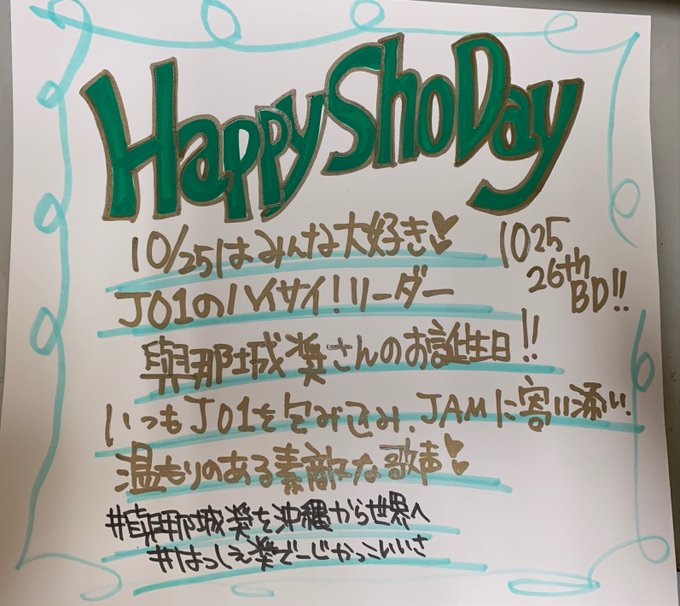 Happy Sho Day
10/25はみんな大好き♥
1025
26th
BD!!
JO1のハイサイ!リーダー
與那城奨さんのお誕生日!!
いつもJO1を包み込み、JAMに寄り添い、
温もりのある素敵な歌声♥
#與那城奨を沖縄から世界へ
#はっしぇ奨でーじかっこいいさ